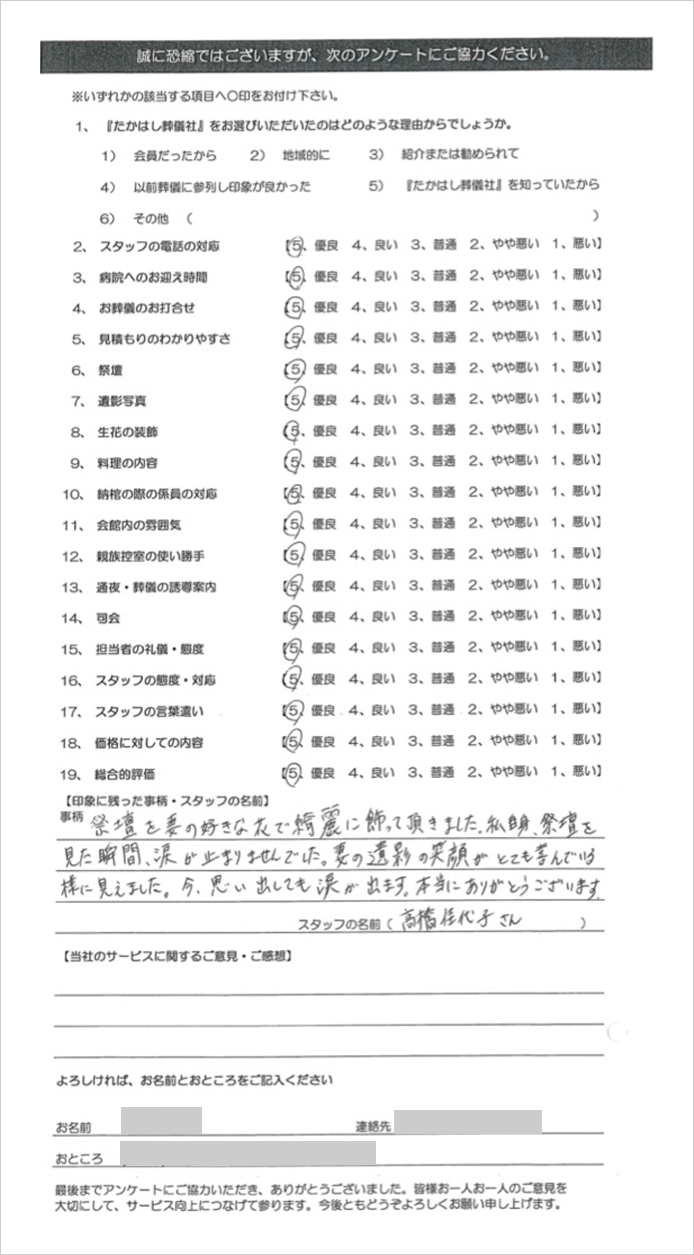 誠に恐縮ではございますが、次のアンケートにご協力ください。
※いずれかの該当する項目へ〇印をお付け下さい。
1、『たかはし葬儀社』をお選びいただいたのはどのような理由からでしょうか。
1) 会員だったから 2) 地域的に 3) 紹介または勧められて
4) 以前葬儀に参列し印象が良かった 5) 『たかはし葬儀社』を知っていたから
6) その他 ( )
2、スタッフの電話の対応 【5、優良 4、良い 3、普通 2、やや悪い 1、悪い】
3、病院へのお迎え時間 【5、優良 4、良い 3、普通 2、やや悪い 1、悪い】
4、お葬儀のお打合せ 【5、優良 4、良い 3、普通 2、やや悪い 1、悪い】
5、見積もりのわかりやすさ 【5、優良 4、良い 3、普通 2、やや悪い 1、悪い】
6、祭壇 【5、優良 4、良い 3、普通 2、やや悪い 1、悪い】
7、遺影写真 【5、優良 4、良い 3、普通 2、やや悪い 1、悪い】
8、生花の装飾 【5、優良 4、良い 3、普通 2、やや悪い 1、悪い】
9、料理の内容 【5、優良 4、良い 3、普通 2、やや悪い 1、悪い】
10、納棺の際の係員の対応 【5、優良 4、良い 3、普通 2、やや悪い 1、悪い】
11、会館内の雰囲気 【5、優良 4、良い 3、普通 2、やや悪い 1、悪い】
12、親族控室の使い勝手 【5、優良 4、良い 3、普通 2、やや悪い 1、悪い】
13、通夜・葬儀の誘導案内 【5、優良 4、良い 3、普通 2、やや悪い 1、悪い】
14、司会 【5、優良 4、良い 3、普通 2、やや悪い 1、悪い】
15、担当者の礼儀・態度 【5、優良 4、良い 3、普通 2、やや悪い 1、悪い】
16、スタッフの態度・対応 【5、優良 4、良い 3、普通 2、やや悪い 1、悪い】
17、スタッフの言葉遣い 【5、優良 4、良い 3、普通 2、やや悪い 1、悪い】
18、価格に対しての内容 【5、優良 4、良い 3、普通 2、やや悪い 1、悪い】
19、総合的評価 【5、優良 4、良い 3、普通 2、やや悪い 1、悪い】
【印象に残った事柄・スタッフの名前】
事柄 祭壇を妻の好きな花で綺麗に飾って頂きました。私自身、祭壇を
見た瞬間、涙が止まりませんでした。妻の遺影の笑顔がとても喜んでいる
様に見えました。今、思い出しても涙が出ます。本当にありがとうございます。
スタッフの名前 ( 高橋佳代子さん )
【当社のサービスに関するご意見・ご感想】
よろしければ、お名前とおところをご記入ください
お名前 連絡先
おところ
最後までアンケートにご協力いただき、ありがとうございました。皆様お一人お一人のご意見を
大切にして、サービス向上につなげて参ります。今後ともどうぞよろしくお願い申し上げます。